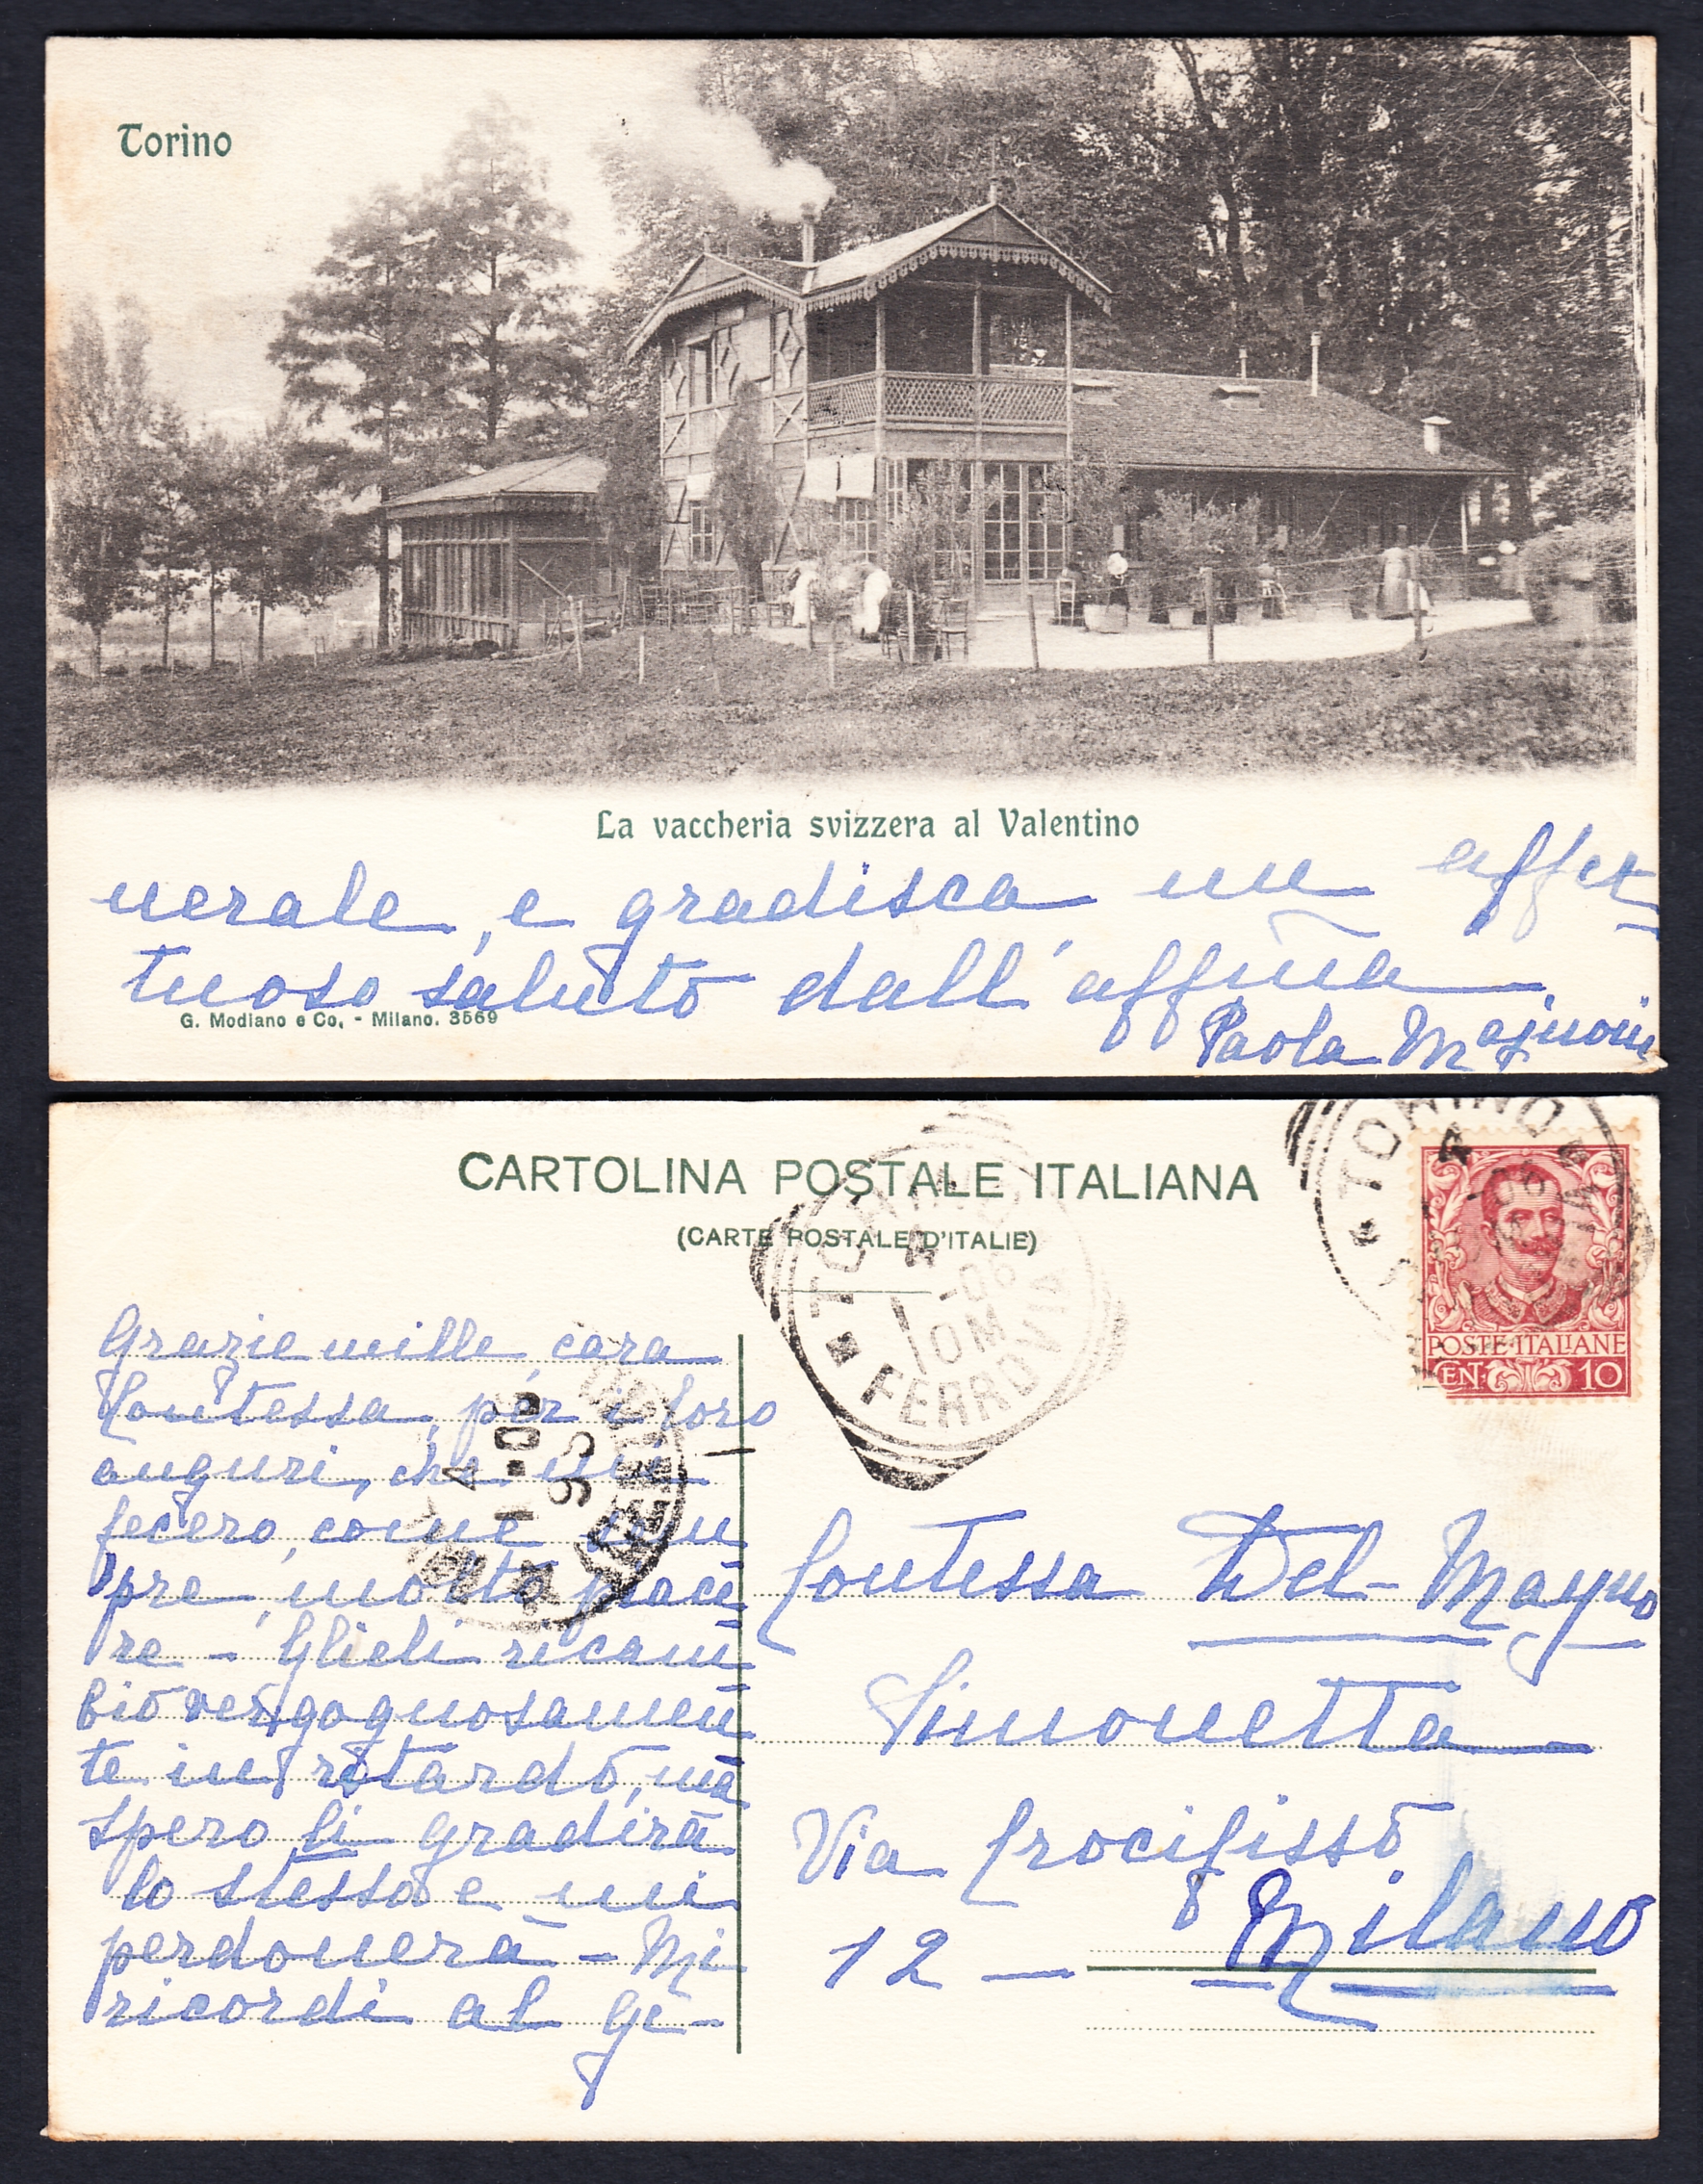 Torino
La vaccheria svizzera al Valentino
nerale, e gradisca un affet-
tuoso saluto dall'affma.
G. Modiano e Co. - Milano. 3569
Paola
CARTOLINA POSTALE ITALIANA
(CARTE POSTALE D'ITALIE)
TORINO
4
1-06
10M
FERROVIA
TORINO
4
POSTE·ITALIANE
CEN. 10
Grazie mille cara
Contessa, per i loro
auguri, che mi
fecero, come sem
pre, molto piace
re - Glieli ricam
bio vergognosamen
te in ritardo, ma
spero li gradirà
lo stesso e mi
perdonerà - Mi
ricordi al Ge-
Contessa Del Mayno
Simonetta
Via Crocifisso
12 — Milano